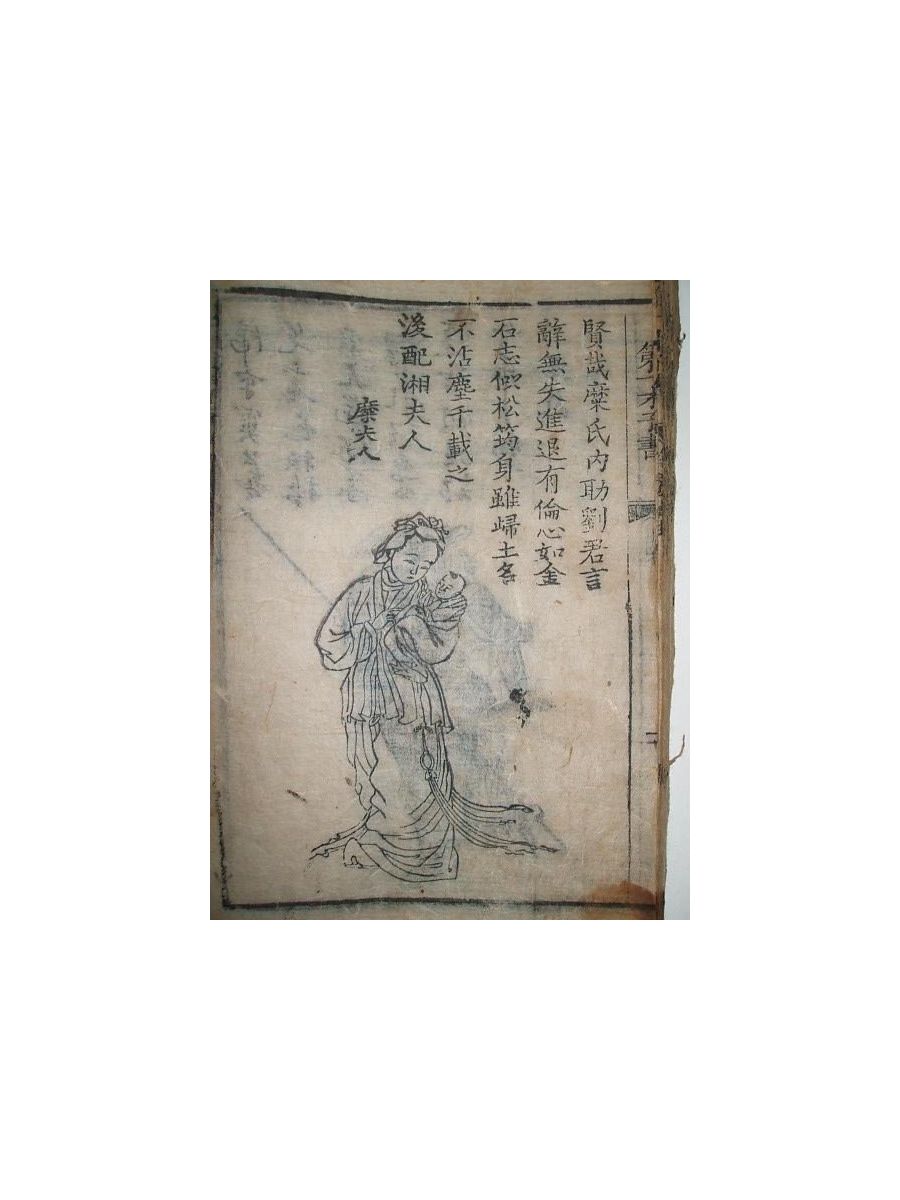 賢哉糜氏內助劉君言
辭無失進退有倫心如金
石志似松筠身雖歸土名
不沾塵千載之
後配湘夫人
糜夫人
第一才子書
二